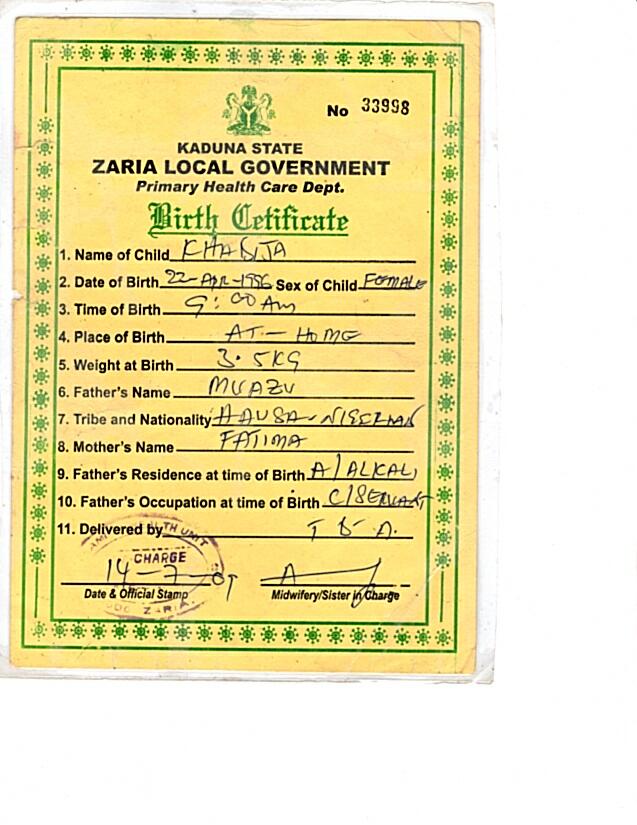 No 33998
KADUNA STATE
ZARIA LOCAL GOVERNMENT
Primary Health Care Dept.
Birth Cetificate
1. Name of Child KHADIJA
2. Date of Birth 22-APR-1996 Sex of Child FEMALE
3. Time of Birth 9:00 Am
4. Place of Birth AT-HOME
5. Weight at Birth 3.5KG
6. Father's Name MUAZU
7. Tribe and Nationality HAUSA-NIGERIAN
8. Mother's Name FATIMA
9. Father's Residence at time of Birth A/ALKALI
10. Father's Occupation at time of Birth C/SERVANT
11. Delivered by T B A.
HEALTH UNIT
CHARGE
14-7-09
Date & Official Stamp Midwifery/Sister in Charge
ZARIA